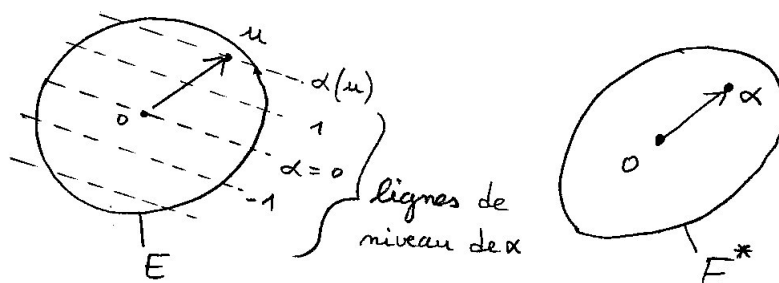 u
α(u)
0
1
α = 0
-1
E
lignes de
niveau de α
α
0
E*